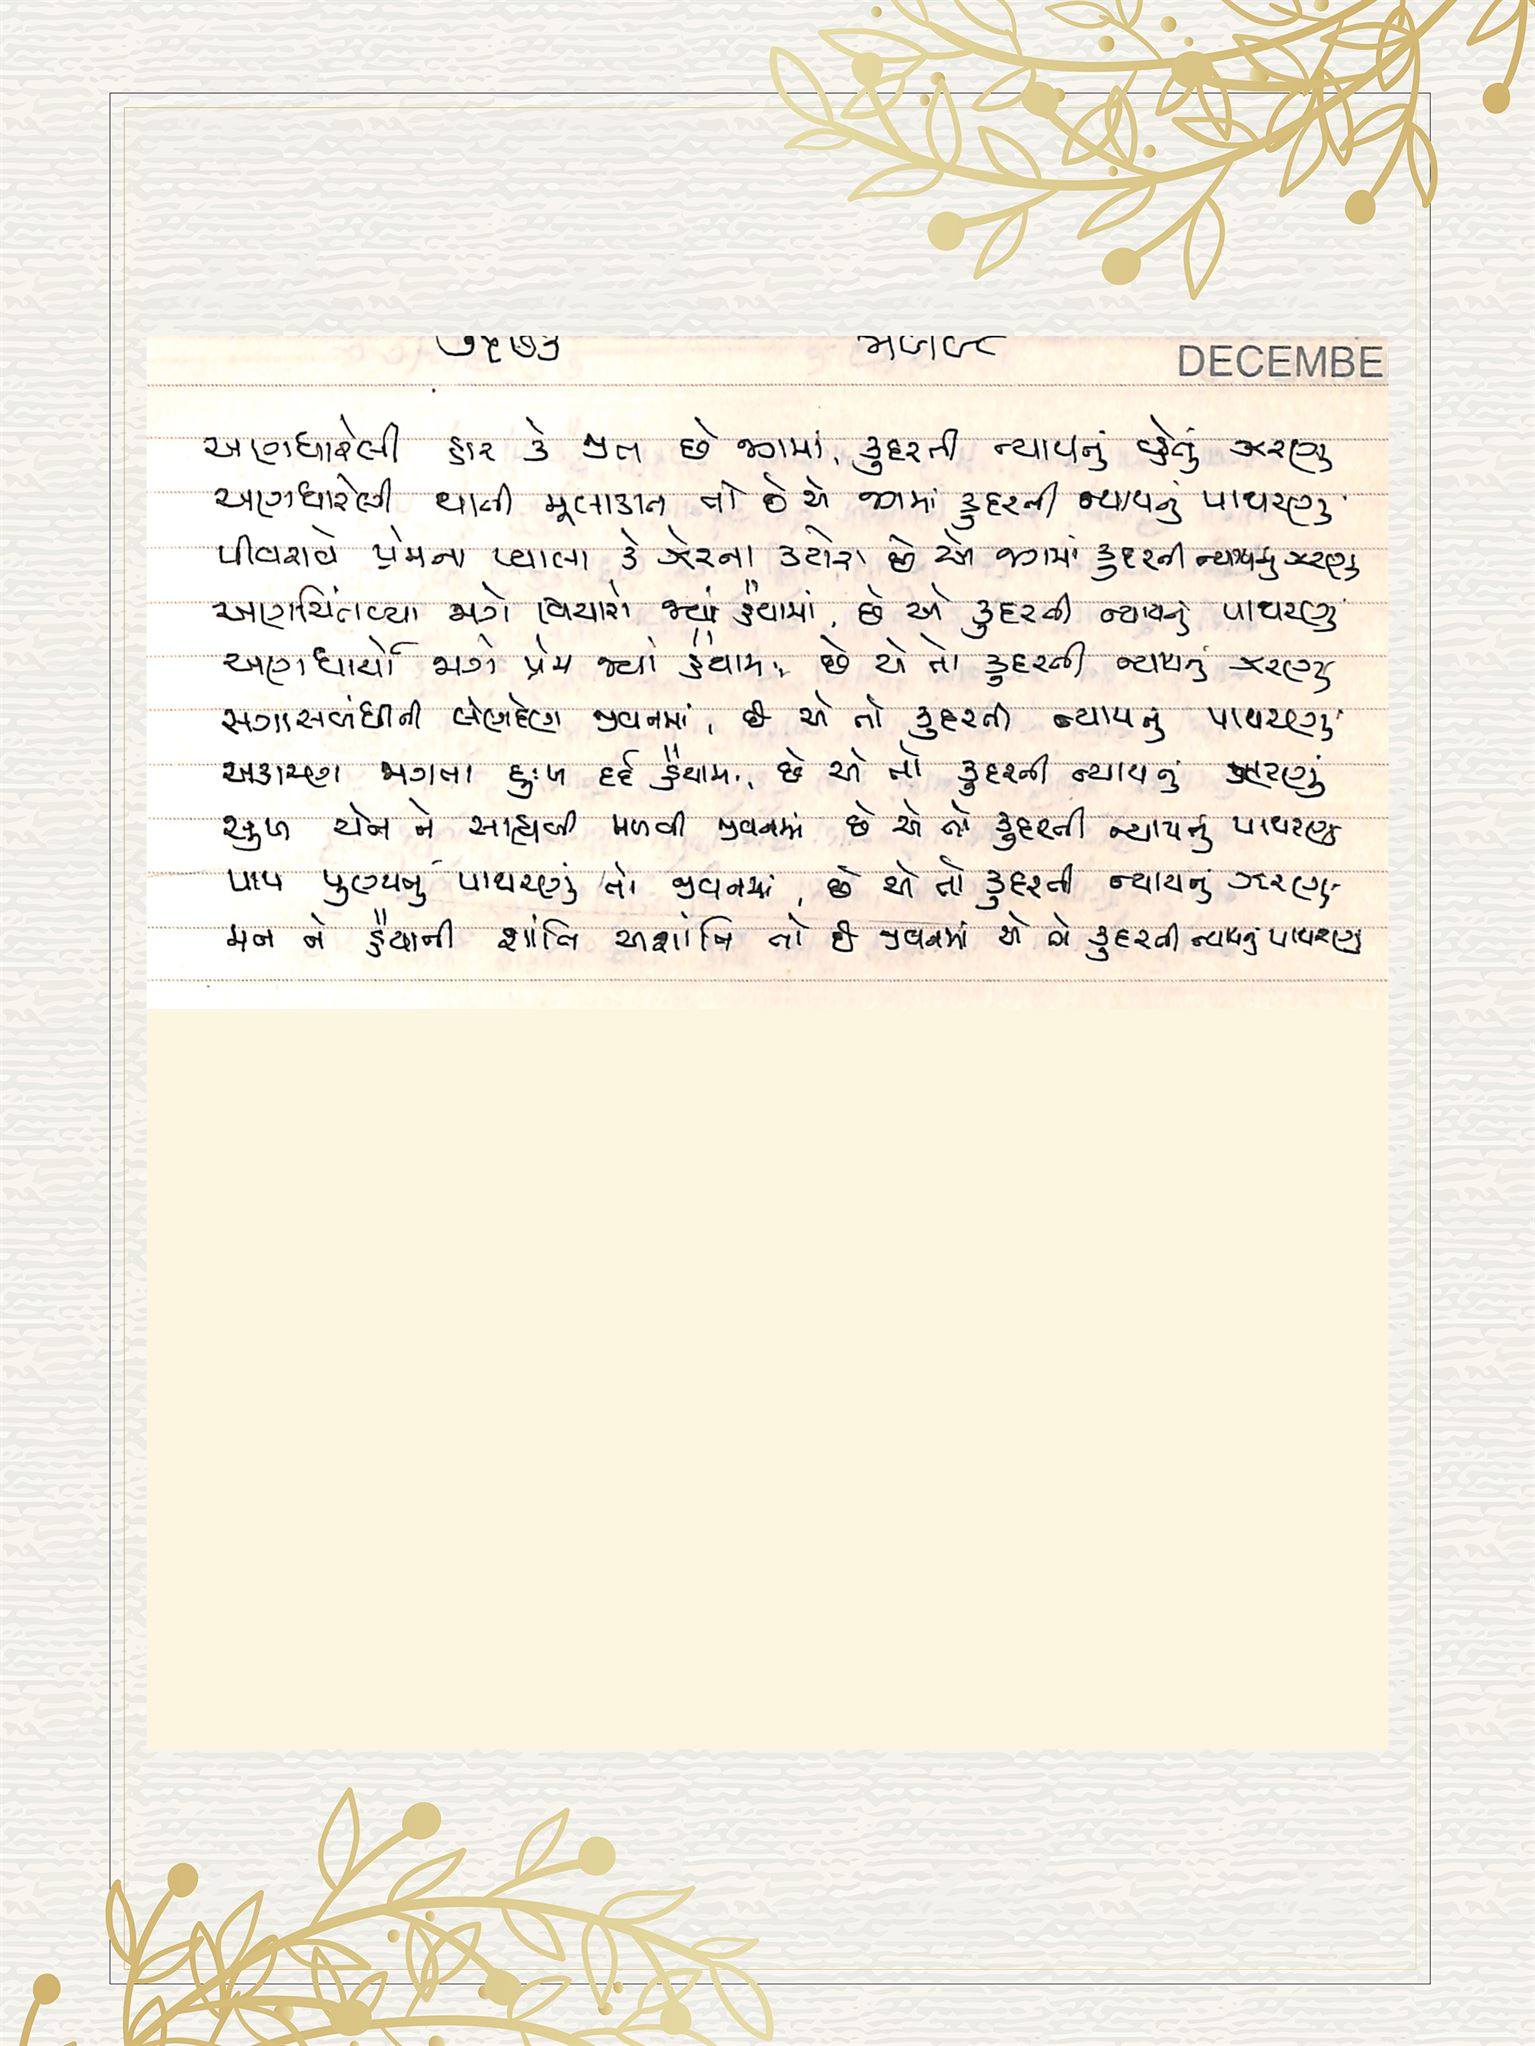 DECEMBE
અણધારેલી હાર કે જીત છે જગમાં, કુદરતની ન્યાયનું વ્હેતું ઝરણુ
અણધારેલી થાતી મૂલાકાત તો છે એ જગમાં કુદરતની ન્યાયનું પાથરણુ
પીવરાવે પ્રેમના પ્યાલા કે ઝેરના કટોરા છે એ જગમાં કુદરતની ન્યાયનુ ઝરણુ
અણચિંતવ્યા જાગે વિચારો જ્યાં હૈયામાં, છે એ કુદરતની ન્યાયનું પાથરણુ
અણધાર્યો જાગે પ્રેમ જ્યાં હૈયામાં, છે એ તો કુદરતની ન્યાયનું ઝરણુ
સગાસબંધીની લેણદેણ જીવનમાં, છે એ તો કુદરતની ન્યાયનું પાથરણુ
અકારણ જાગતા દુઃખ દર્દ હૈયામાં, છે એ તો કુદરતની ન્યાયનું ઝરણું
સુખ ચેન ને સાહ્યબી મળવી જીવનમાં છે એ તો કુદરતની ન્યાયનું પાથરણુ
પાપ પુણ્યનું પાથરણું તો જીવનમાં, છે એ તો કુદરતની ન્યાયનું ઝરણુ
મન ને હૈયાની શાંતિ અશાંતિ તો છે જીવનમાં એ તો કુદરતની ન્યાયનું પાથરણુ